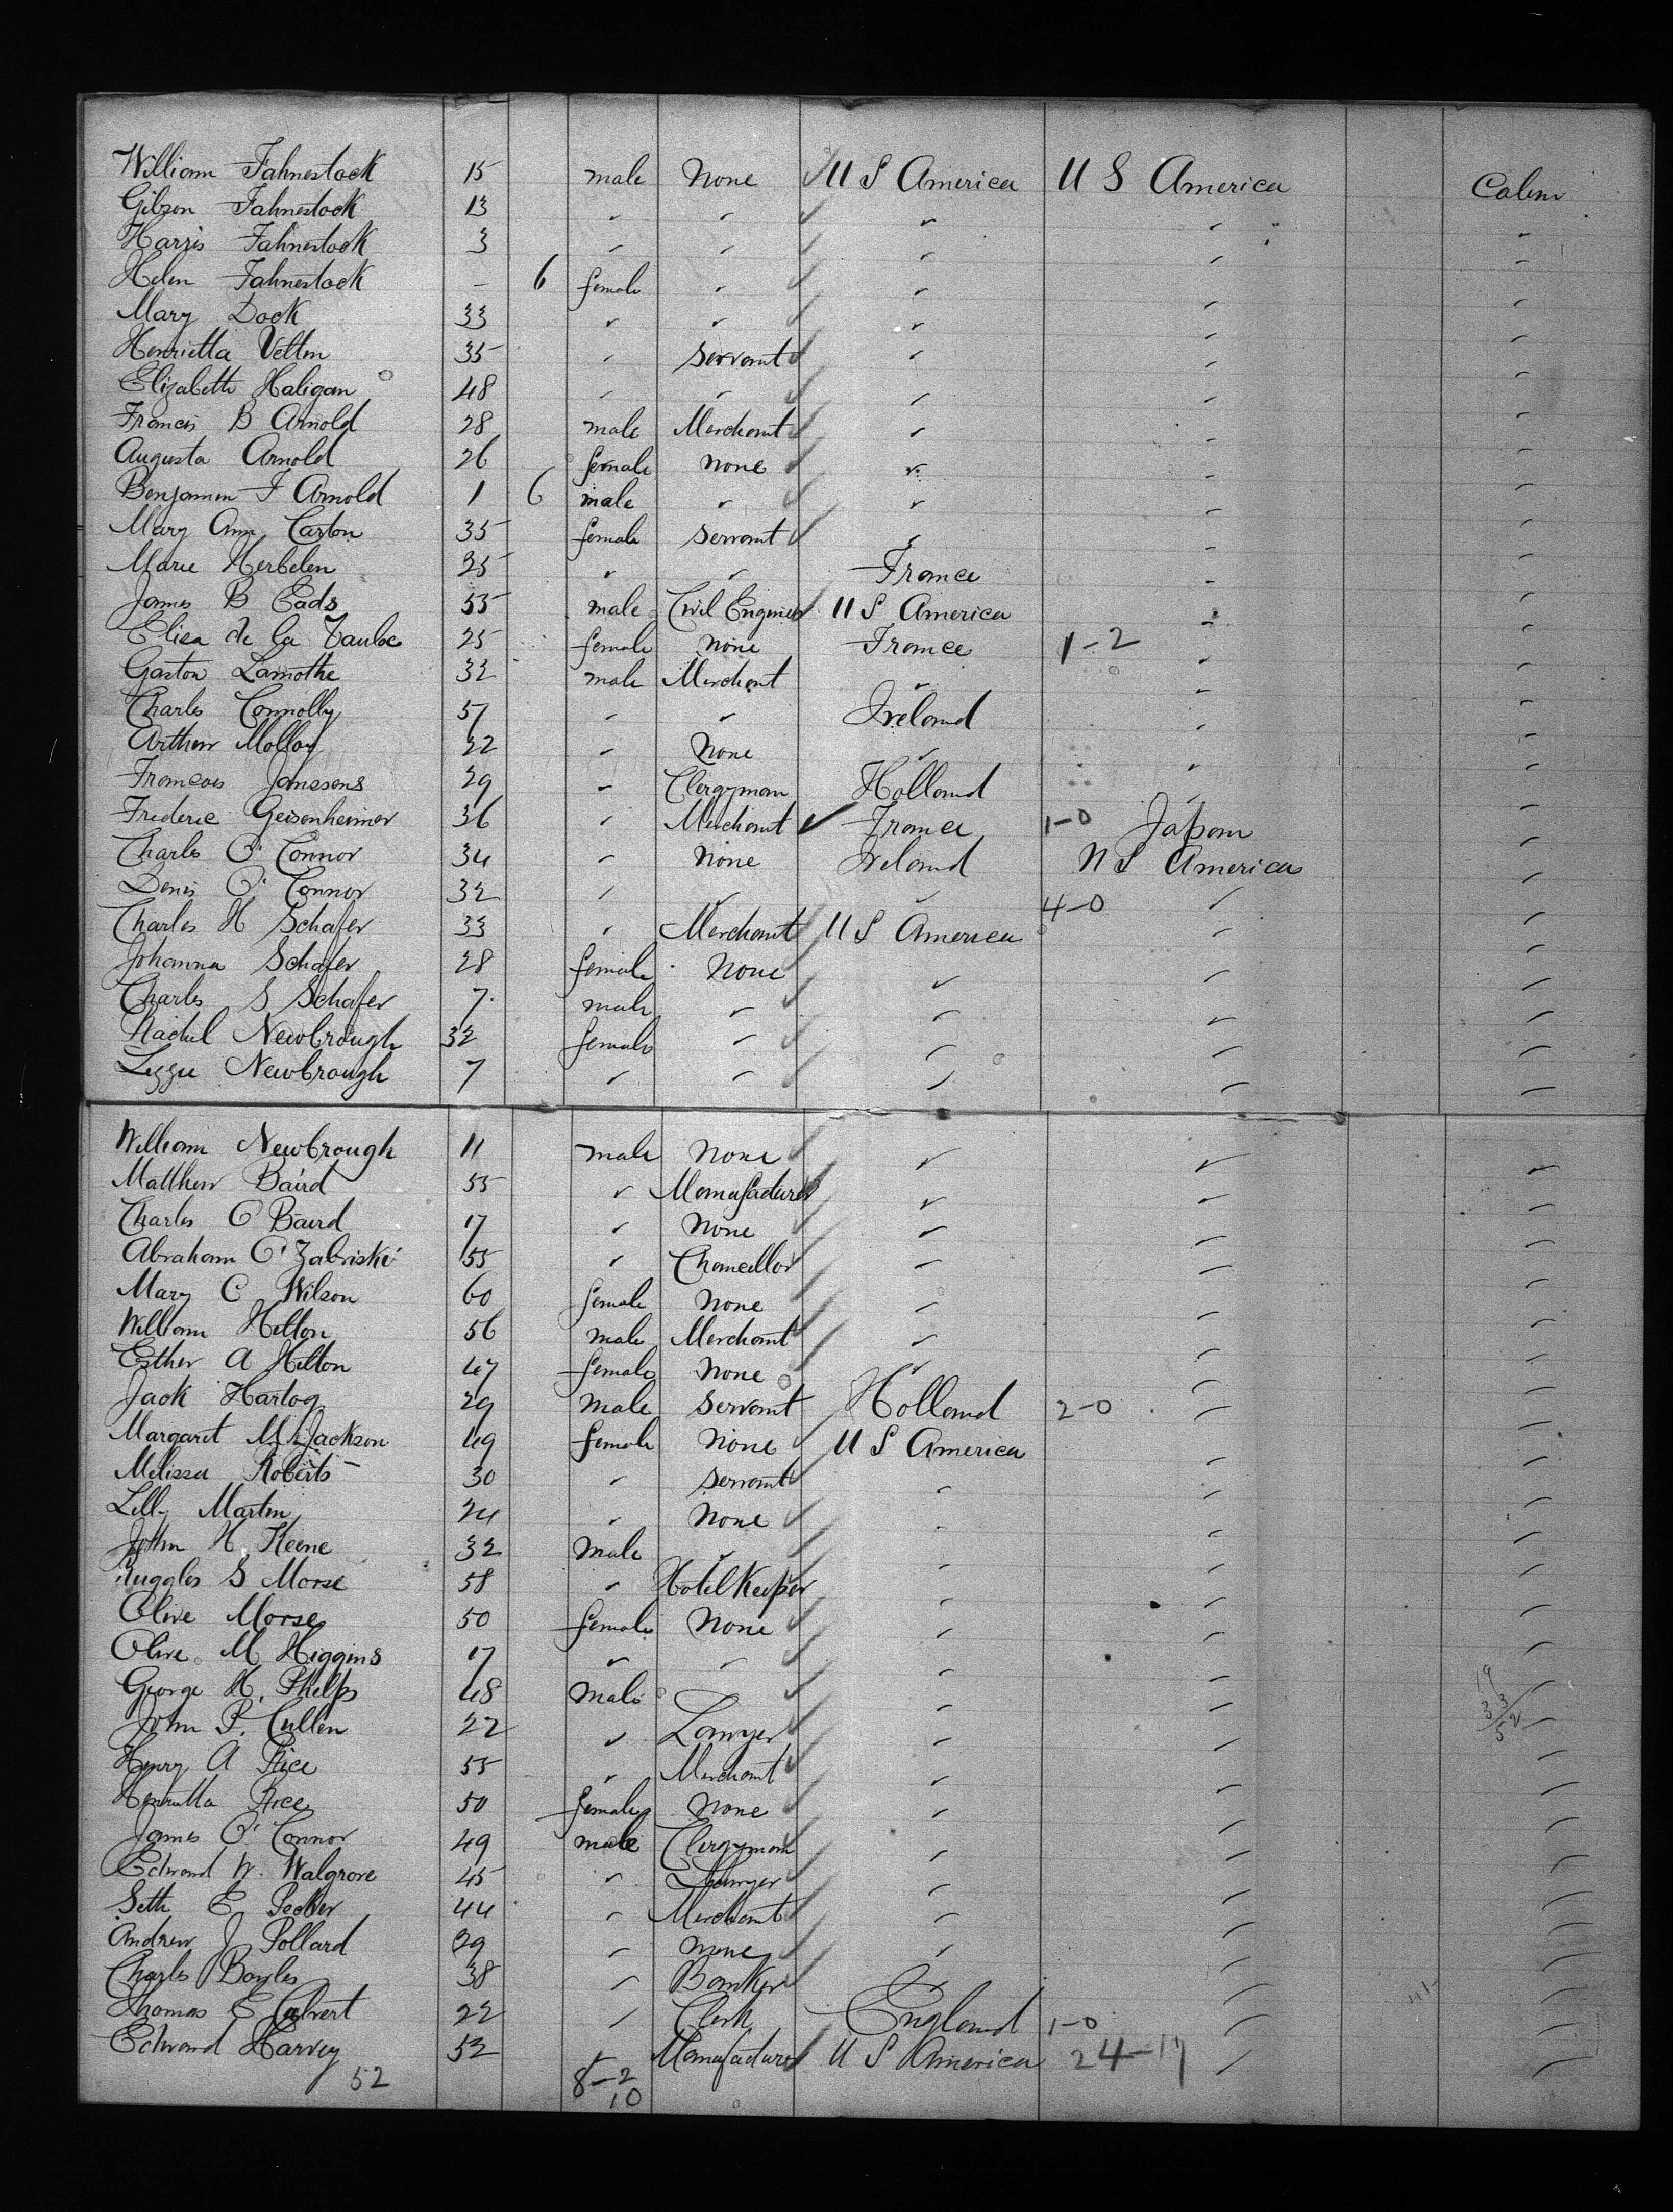 William Fahnestock 15 male None ✓ U S America U S America Cabin
Gibson Fahnestock 13 " " ✓ " " "
Harris Fahnestock 3 " " ✓ " " "
Helen Fahnestock - 6 female " ✓ " " "
Mary Dock 33 " " ✓ " " "
Henrietta Vetten 35 " Servant ✓ " " "
Elizabeth Haligan 48 " " ✓ " " "
Francis B Arnold 28 male Merchant ✓ " " "
Augusta Arnold 26 female None ✓ " " "
Benjamin F Arnold 1 6 male " ✓ " " "
Mary Ann Carton 35 female Servant ✓ " " "
Marie Herbelen 25 " " France " "
James B Eads 55 male Civil Engineer U S America " "
Elisa de la Taulae 25 female None France 1-2 " "
Gaston Lamothe 32 male Merchant " " "
Charles Connolly 57 " " Ireland " "
Arthur Molloy 22 " None " " "
Francois Janssens 29 " Clergyman Holland " "
Frederic Geisenheimer 36 " Merchant ✓ France 1-0 Japan "
Charles O'Connor 34 " None Ireland U S America "
Denis O'Connor 32 " " " 4-0 " "
Charles H Schafer 33 " Merchant ✓ U S America " "
Johanna Schafer 28 female None ✓ " " "
Charles S Schafer 7 male " ✓ " " "
Rachel Newbrough 32 female " ✓ " " "
Lizzie Newbrough 7 " " ✓ " " "
William Newbrough 11 male None ✓ " " "
Matthew Baird 55 " Manufacturer ✓ " " "
Charles O Baird 17 " None ✓ " " "
Abraham O Zabriskie 55 " Chancellor ✓ " " "
Mary C Wilson 60 female None ✓ " " "
William Hilton 56 male Merchant ✓ " " "
Esther A Hilton 47 female None ✓ " " "
Jack Hartog 29 male Servant Holland 2-0 " "
Margaret M Jackson 49 female None ✓ U S America " "
Melissa Roberts 30 " Servant ✓ " " "
Lilly Martin 24 " None ✓ " " "
John H Keene 32 male " ✓ " " "
Ruggles S Morse 58 " Hotel Keeper ✓ " " "
Olive Morse 50 female None ✓ " " "
Olive M Higgins 17 " " ✓ " " "
George H. Phelps 48 male " ✓ " " "
John P. Cullen 22 " Lawyer ✓ " " "
Henry A Rice 55 " Merchant ✓ " " "
Henrietta Rice 50 female None ✓ " " "
James O'Connor 49 male Clergyman ✓ " " "
Edward W. Walgrove 45 " Lawyer ✓ " " "
Seth E Pecker 44 " Merchant ✓ " " "
Andrew J Pollard 29 " None ✓ " " "
Charles Boyles 38 " Banker ✓ " " "
Thomas E Calvert 22 " Clerk England 1-0 " "
Edward Harvey 52 " Manufacturer ✓ U S America 24-17 " "
52 8-2
10